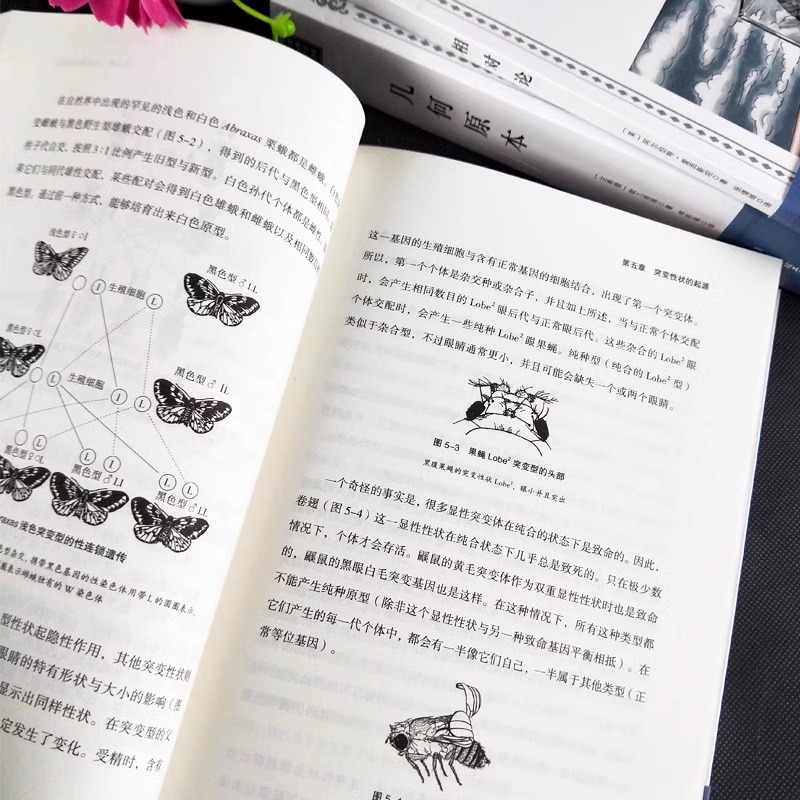 相对论
几何原本
在自然界中出现的罕见的浅色和白色 Abraxas 栗蛾都是雌蛾。
变雌蛾与黑色野生型雄蛾交配（图 5-2），得到的后代与黑色型相同。
些子代自交，按照 3∶1 比例产生旧型与新型。白色孙代个体都是雌性。
某它们与同代雄性交配，某些配对会得到白色雄蛾和雌蛾以及相同数目
黑色型。通过前一种方式，能够培育出来白色原型。
浅色型♀○l
生殖细胞
黑色型♂LL
黑色型♀○L
生殖细胞
黑色型♂LL
黑色型♀○L
黑色型♂LL
黑色型♂LL
raxas 浅色突变型的性连锁遗传
色型杂交，携带黑色基因的性染色体用带 L 的圆圈表示，
圆表示雌蛾独有的 W 染色体
型性状起隐性作用，其他突变性状则
眼睛的特有形状与大小的影响（图
显示出同样性状。在突变型的父
定发生了变化。受精时，含有
第五章 突变性状的起源
这一基因的生殖细胞与含有正常基因的细胞结合，出现了第一个突变体。
所以，第一个个体是杂交种或杂合子，并且如上所述，当与正常个体交配
时，会产生相同数目的 Lobe² 眼后代与正常眼后代。这些杂合的 Lobe² 眼
个体交配时，会产生一些纯种 Lobe² 眼果蝇。纯种型（纯合的 Lobe² 型）
类似于杂合型，不过眼睛通常更小，并且可能会缺失一个或两个眼睛。
图 5-3 果蝇 Lobe² 突变型的头部
黑腹果蝇的突变性状 Lobe²，眼小并且突出
一个奇怪的事实是，很多显性突变体在纯合的状态下是致命的。因此，
卷翅（图 5-4）这一显性性状在纯合状态下几乎总是致死的。只在极少数
情况下，个体才会存活。鼷鼠的黄毛突变体作为双重显性性状时也是致命
的，鼷鼠的黑眼白毛突变基因也是这样。在这种情况下，所有这种类型都
不能产生纯种原型（除非这个显性性状与另一种致命基因平衡相抵）。在
它们产生的每一代个体中，都会有一半像它们自己，一半属于其他类型（正
常等位基因）。
图 5-4